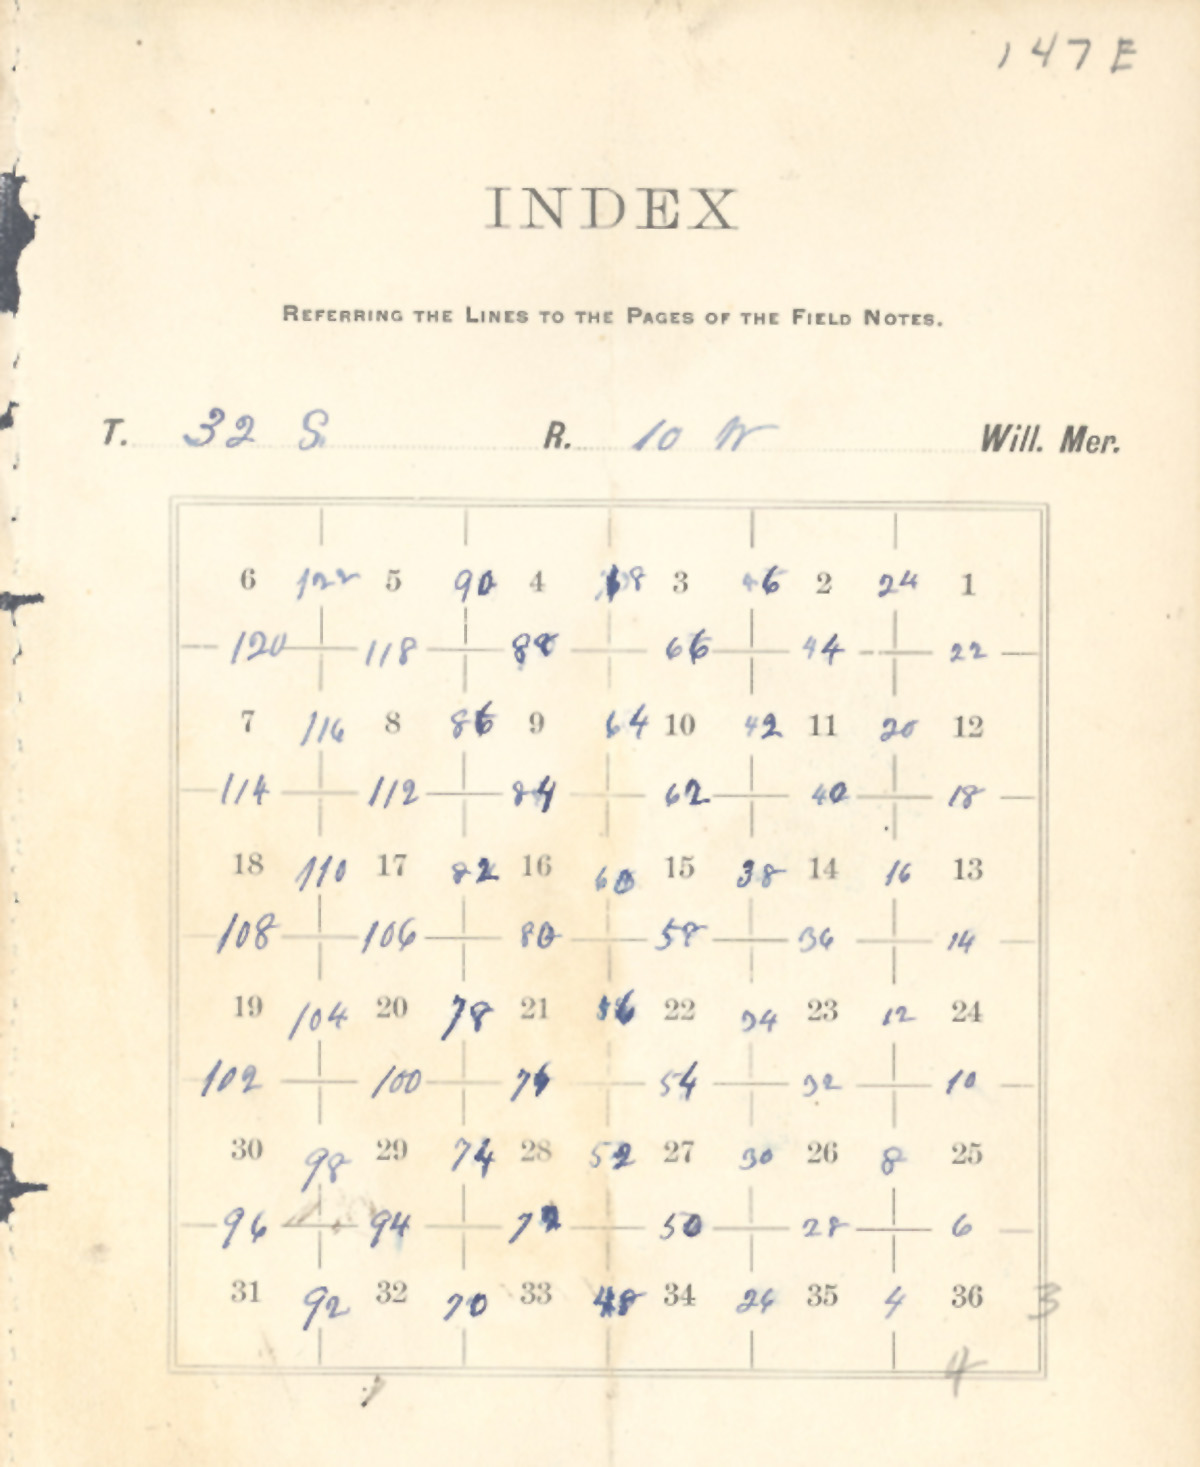 147 E
INDEX
REFERRING THE LINES TO THE PAGES OF THE FIELD NOTES.
T. 32 S. R. 10 W Will. Mer.
6 122 5 90 4 68 3 46 2 24 1
120 118 88 66 44 22
7 116 8 86 9 64 10 42 11 20 12
114 112 84 62 40 18
18 110 17 82 16 60 15 38 14 16 13
108 106 80 58 36 14
19 104 20 78 21 56 22 34 23 12 24
102 100 76 54 32 10
30 98 29 74 28 52 27 30 26 8 25
96 94 72 50 28 6
31 92 32 70 33 48 34 26 35 4 36 3
4